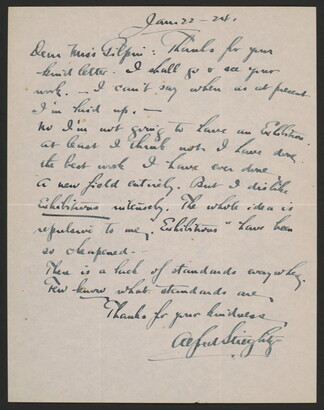 Jan. 22 - 24.
Dear Miss Gilpin: Thanks for your
kind letter. I shall go & see your
work. - I can't say when as at present
I'm laid up. -
No I'm not going to have an Exhibition
at least I think not. I have done
the best work I have ever done,
a new field entirely. But I dislike
Exhibitions intensely. The whole idea is
repulsive to me. "Exhibitions" have been
so cheapened. -
There is a lack of standards everywhere.
Few know what standards are.
Thanks for your kindness
Alfred Stieglitz